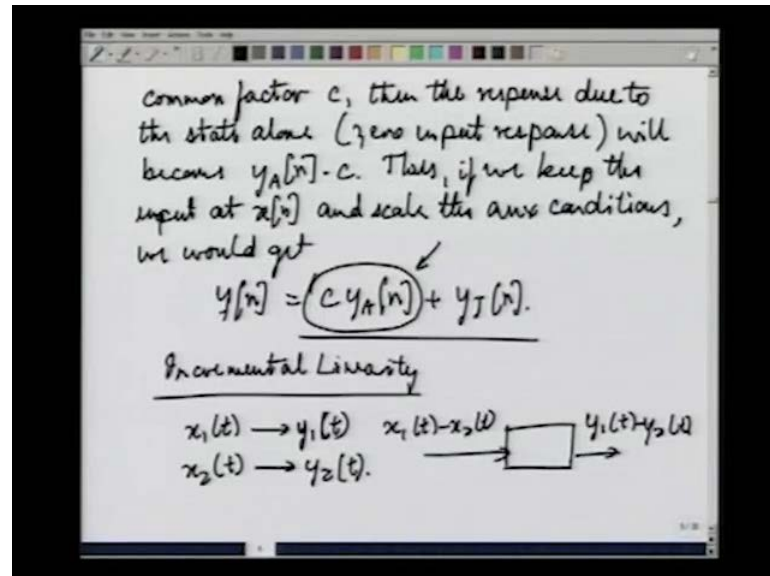 common factor c, then the response due to
the state alone (zero input response) will
become y_A[n]·c. Thus, if we keep the
input at x[n] and scale the aux conditions,
we would get
y[n] = c y_A[n] + y_I[n].
Incremental Linearity
x₁(t) → y₁(t) x₁(t)-x₂(t) y₁(t)-y₂(t)
x₂(t) → y₂(t).